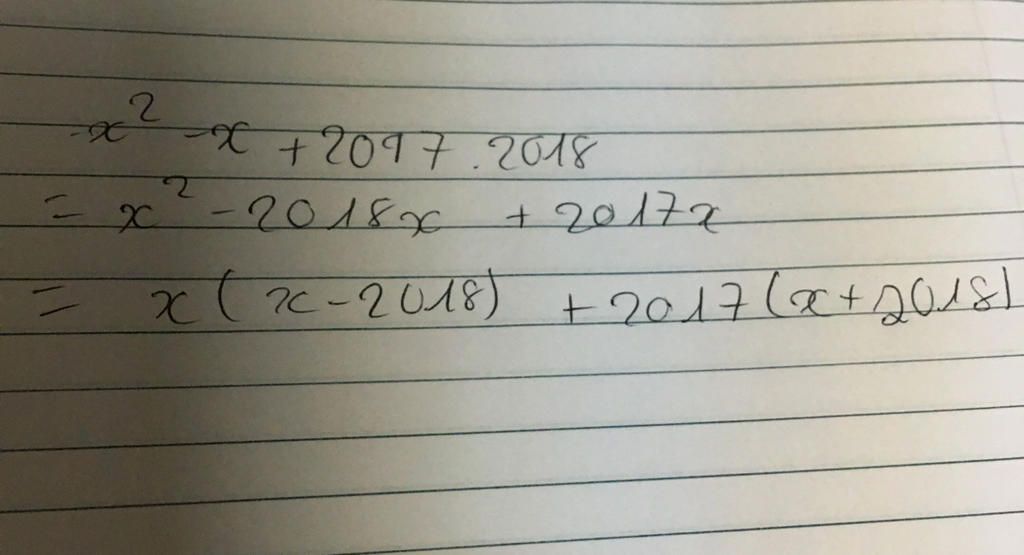 x² - x + 2017 . 2018
= x² - 2018x + 2017x
= x(x - 2018) + 2017(x + 2018)